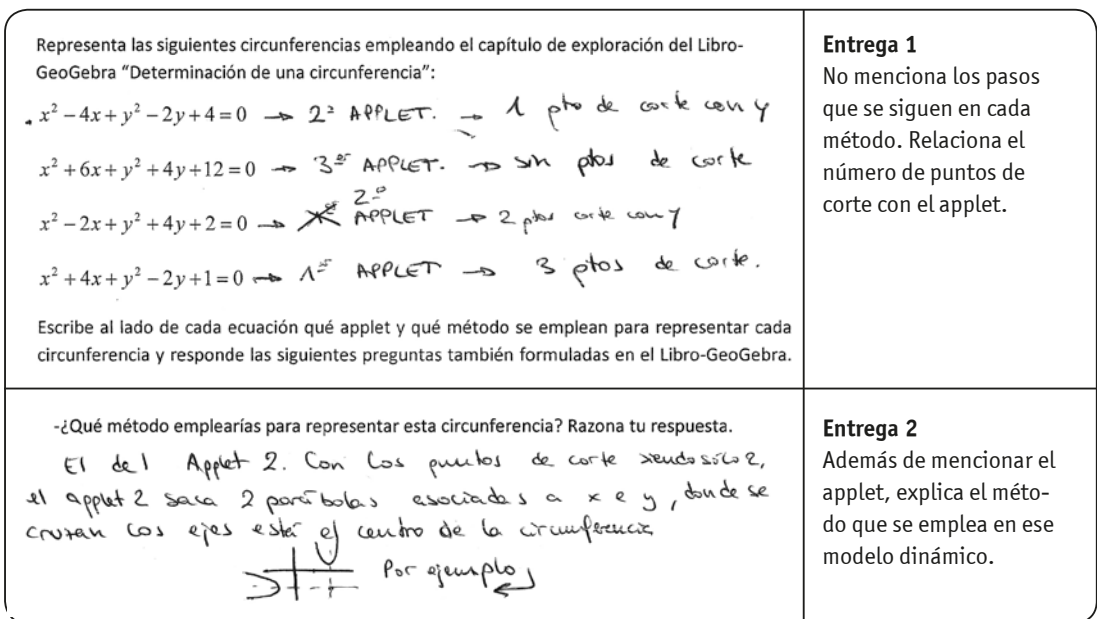 Representa las siguientes circunferencias empleando el capítulo de exploración del Libro-
GeoGebra “Determinación de una circunferencia”:
x² − 4x + y² − 2y + 4 = 0 → 2º APPLET. → 1 pto de corte con y
x² + 6x + y² + 4y + 12 = 0 → 3er APPLET. → sin ptos de corte
x² − 2x + y² + 4y + 2 = 0 → 2º APPLET → 2 ptos corte con y
x² + 4x + y² − 2y + 1 = 0 → 1er APPLET → 3 ptos de corte.
Escribe al lado de cada ecuación qué applet y qué método se emplean para representar cada
circunferencia y responde las siguientes preguntas también formuladas en el Libro-GeoGebra.
Entrega 1
No menciona los pasos
que se siguen en cada
método. Relaciona el
número de puntos de
corte con el applet.
-¿Qué método emplearías para representar esta circunferencia? Razona tu respuesta.
El del Applet 2. Con los puntos de corte siendo sólo 2,
el applet 2 saca 2 parábolas asociadas a x e y, donde se
cruzan los ejes está el centro de la circunferencia
Por ejemplo
Entrega 2
Además de mencionar el
applet, explica el méto-
do que se emplea en ese
modelo dinámico.